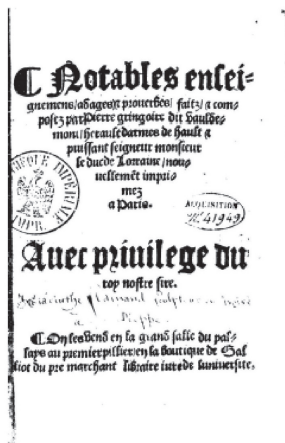 ¶ Notables ensei-
gnemens / adages & prouerbes / faitz / & com-
posez par Pierre gringoire dit Vaulde-
mont / herault darmes de hault &
puissant seigneur monsieur
le duc de Lorraine / nou-
uellemēt impri-
mez
a Paris.
ACQUISITION
41949
IMPR.
Auec priuilege du
roy nostre sire.
a Dieppe
¶ On les vend en la grand salle du pal-
lays au premier pillier en la boutique de Gal
liot du pre marchant libraire iure de luniuersite.